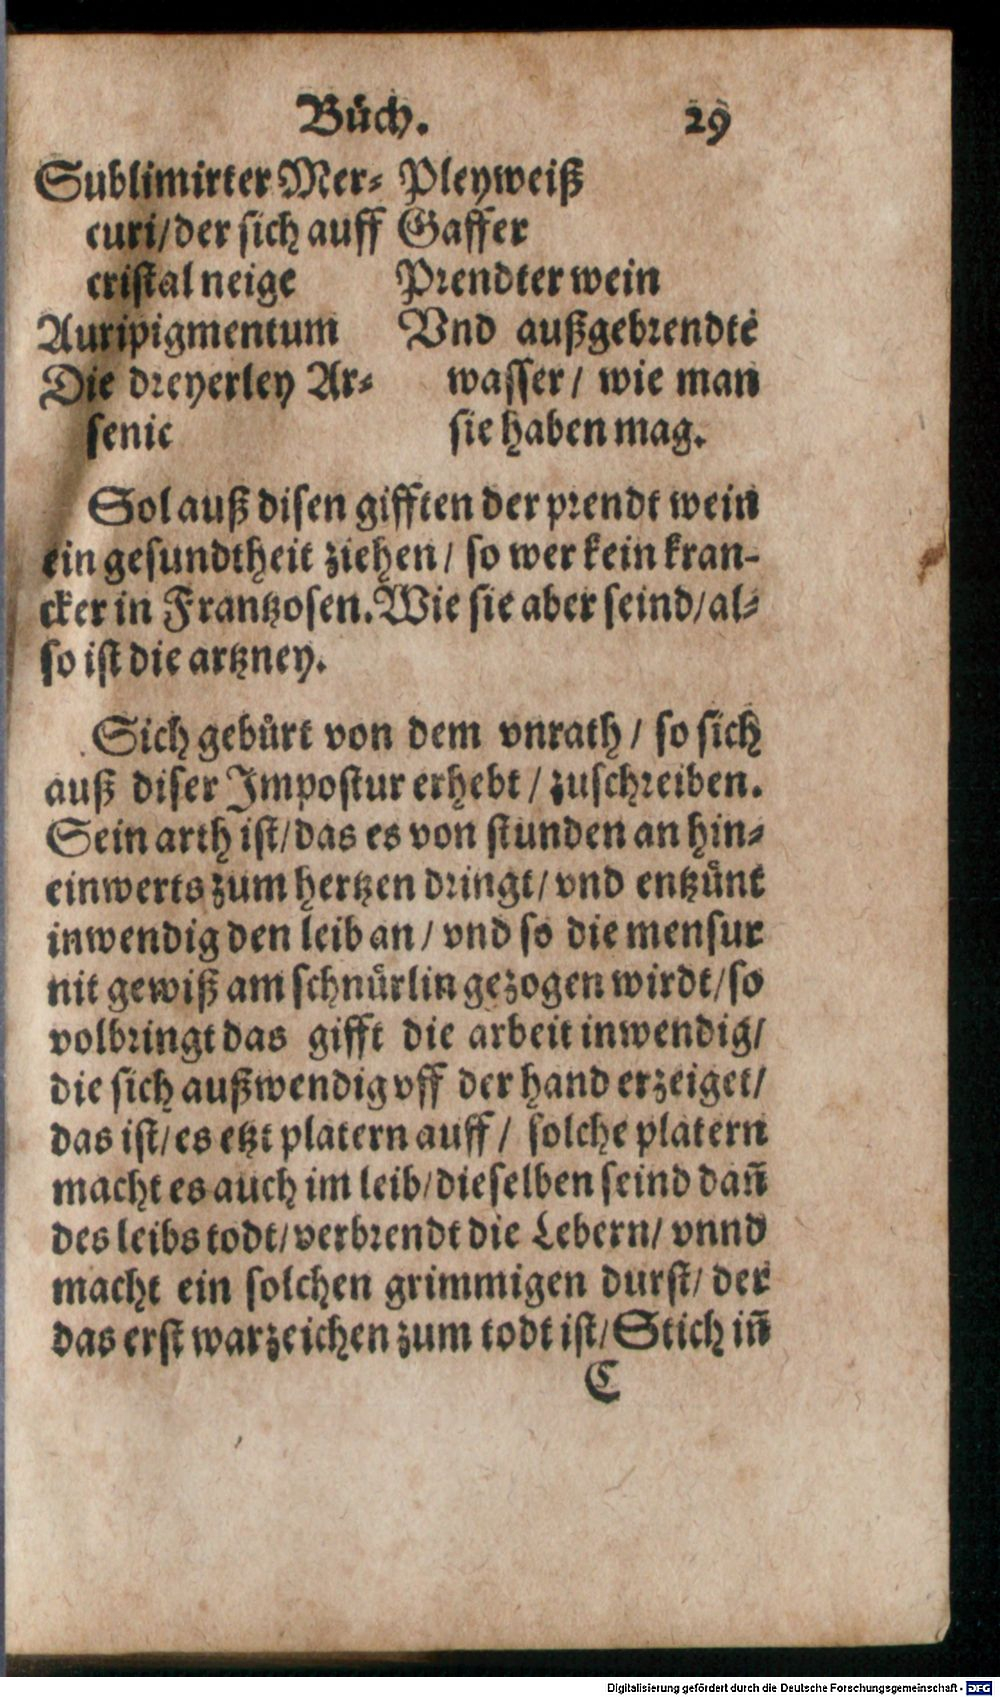 Buͤch. 29
Sublimirter Mer-
curi/der sich auff
cristal neige
Auripigmentum
Die dreyerley Ar-
senic
Pleyweiß
Gaffer
Prendter wein
Vnd außgebrendtē
wasser/ wie man
sie haben mag.
Sol auß disen gifften der prendt wein
ein gesundtheit ziehen/ so wer kein kran-
cker in Frantzosen. Wie sie aber seind/al-
so ist die artzney.
Sich gebuͤrt von dem vnrath/ so sich
auß diser Impostur erhebt/ zuschreiben.
Sein arth ist/das es von stunden an hin-
einwerts zum hertzen dringt/vnd entzuͤnt
inwendig den leib an/ vnd so die mensur
nit gewiß am schnuͤrlin gezogen wirdt/so
volbringt das gifft die arbeit inwendig/
die sich außwendig vff der hand erzeiget/
das ist/es etzt platern auff/ solche platern
macht es auch im leib/dieselben seind dañ
des leibs todt/verbrendt die Lebern/ vnnd
macht ein solchen grimmigen durst/ der
das erst warzeichen zum todt ist/Stich iñ
C
Digitalisierung gefördert durch die Deutsche Forschungsgemeinschaft - DFG